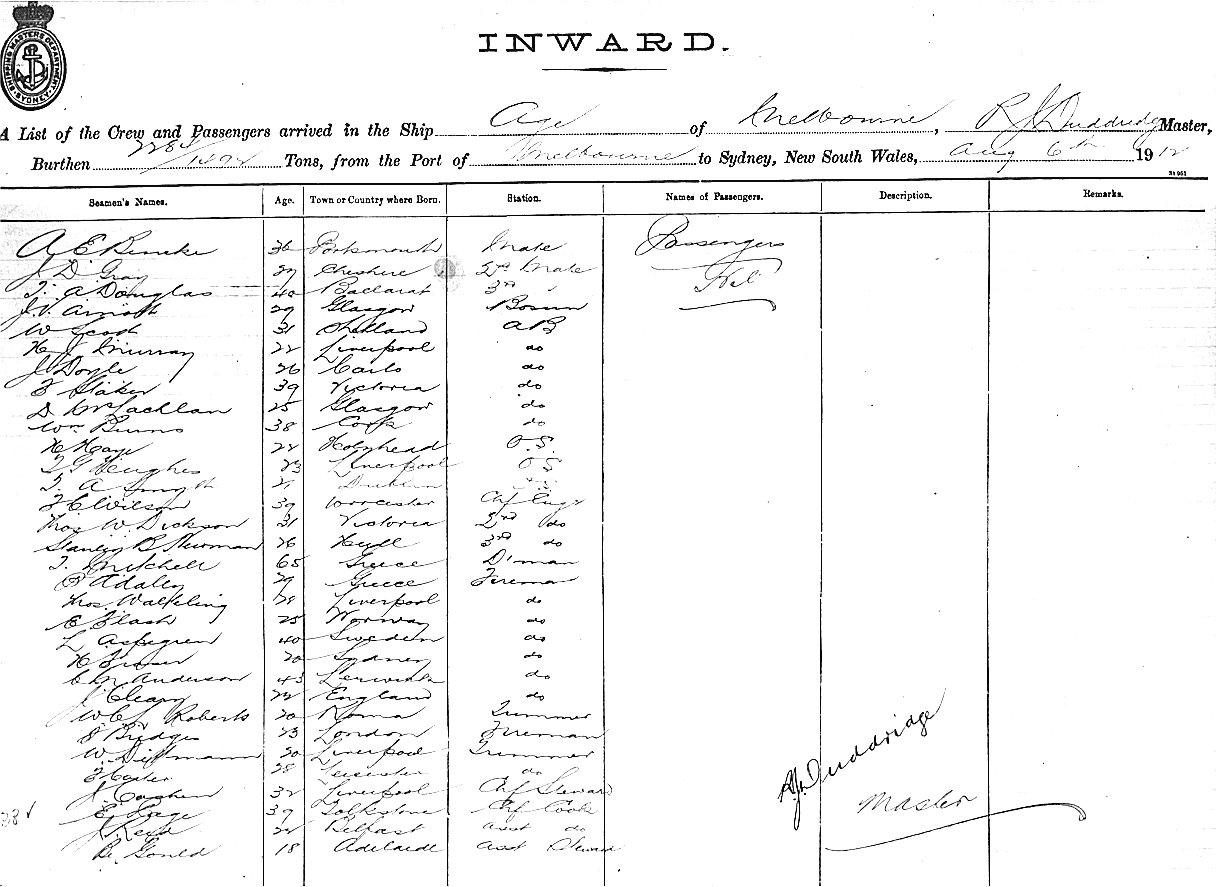 SHIPPING MASTERS DEPARTMENT SYDNEY
INWARD.
A List of the Crew and Passengers arrived in the Ship Age of Melbourne, R J Duddridge Master,
Burthen 2284/1492 Tons, from the Port of Melbourne to Sydney, New South Wales, Aug 6th 1912
Seamen's Names. Age. Town or Country where Born. Station. Names of Passengers. Description. Remarks.
A E 36 Portsmouth Mate Passengers
J. D. Gray 29 Cheshire 2nd Mate Nil
T. A. Douglas 40 Ballarat 3rd "
J. V. Arnott 29 Glasgow Bosun
W Scott 31 Shetland AB
H. J. Murray 22 Liverpool do
J Doyle 26 do
F Staker 39 Victoria do
D McLachlan 25 Glasgow do
Wm Burns 38 Cork do
H Hage Holyhead O.S.
T G Hughes 23 Liverpool OS
T. A Smyth 21 Dublin
F C Wilson 39 Worcester Chf Engr
Thos W. Dickson 31 Victoria 2nd do
Stanley B Newman 26 Hull 3rd do
T. Mitchell 65 Greece D'man
29 Greece Fireman
Thos. Walkeling Liverpool do
25 Norway do
L Aspegren 40 Sweden do
H Fraser 20 Sydney do
C M Anderson 43 Lerwick do
J Cleary 22 England do
W. C. L Roberts 20 Roma Trimmer
S Bridges 23 London Fireman
W. Dittmann 20 Liverpool Trimmer
28 Leicester do
Cashen 32 Liverpool Chf Steward
E. Page 39 Folkstone Chf Cook
Reid Belfast asst do
B. Gould 18 Adelaide asst Steward
R J Duddridge
Master